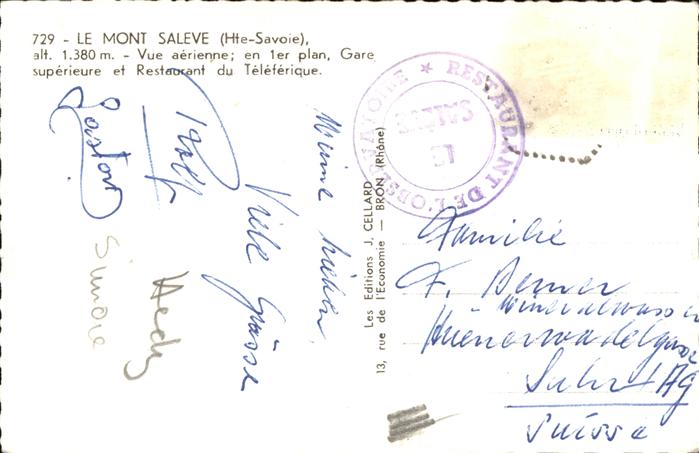 729 - LE MONT SALEVE (Hte-Savoie),
alt. 1.380 m. - Vue aérienne; en 1er plan, Gare
supérieure et Restaurant du Téléférique.
Meine Lieben,
Viele Grüsse
Rolf
Gaston
Hedy
Simone
Les Editions J. CELLARD
13, rue de l'Economie — BRON (Rhône)
RESTAURANT DE L'OBSERVATOIRE ★
LE SALEVE
Familie
F.
Mineralwasser
Suhr / AG
Suisse